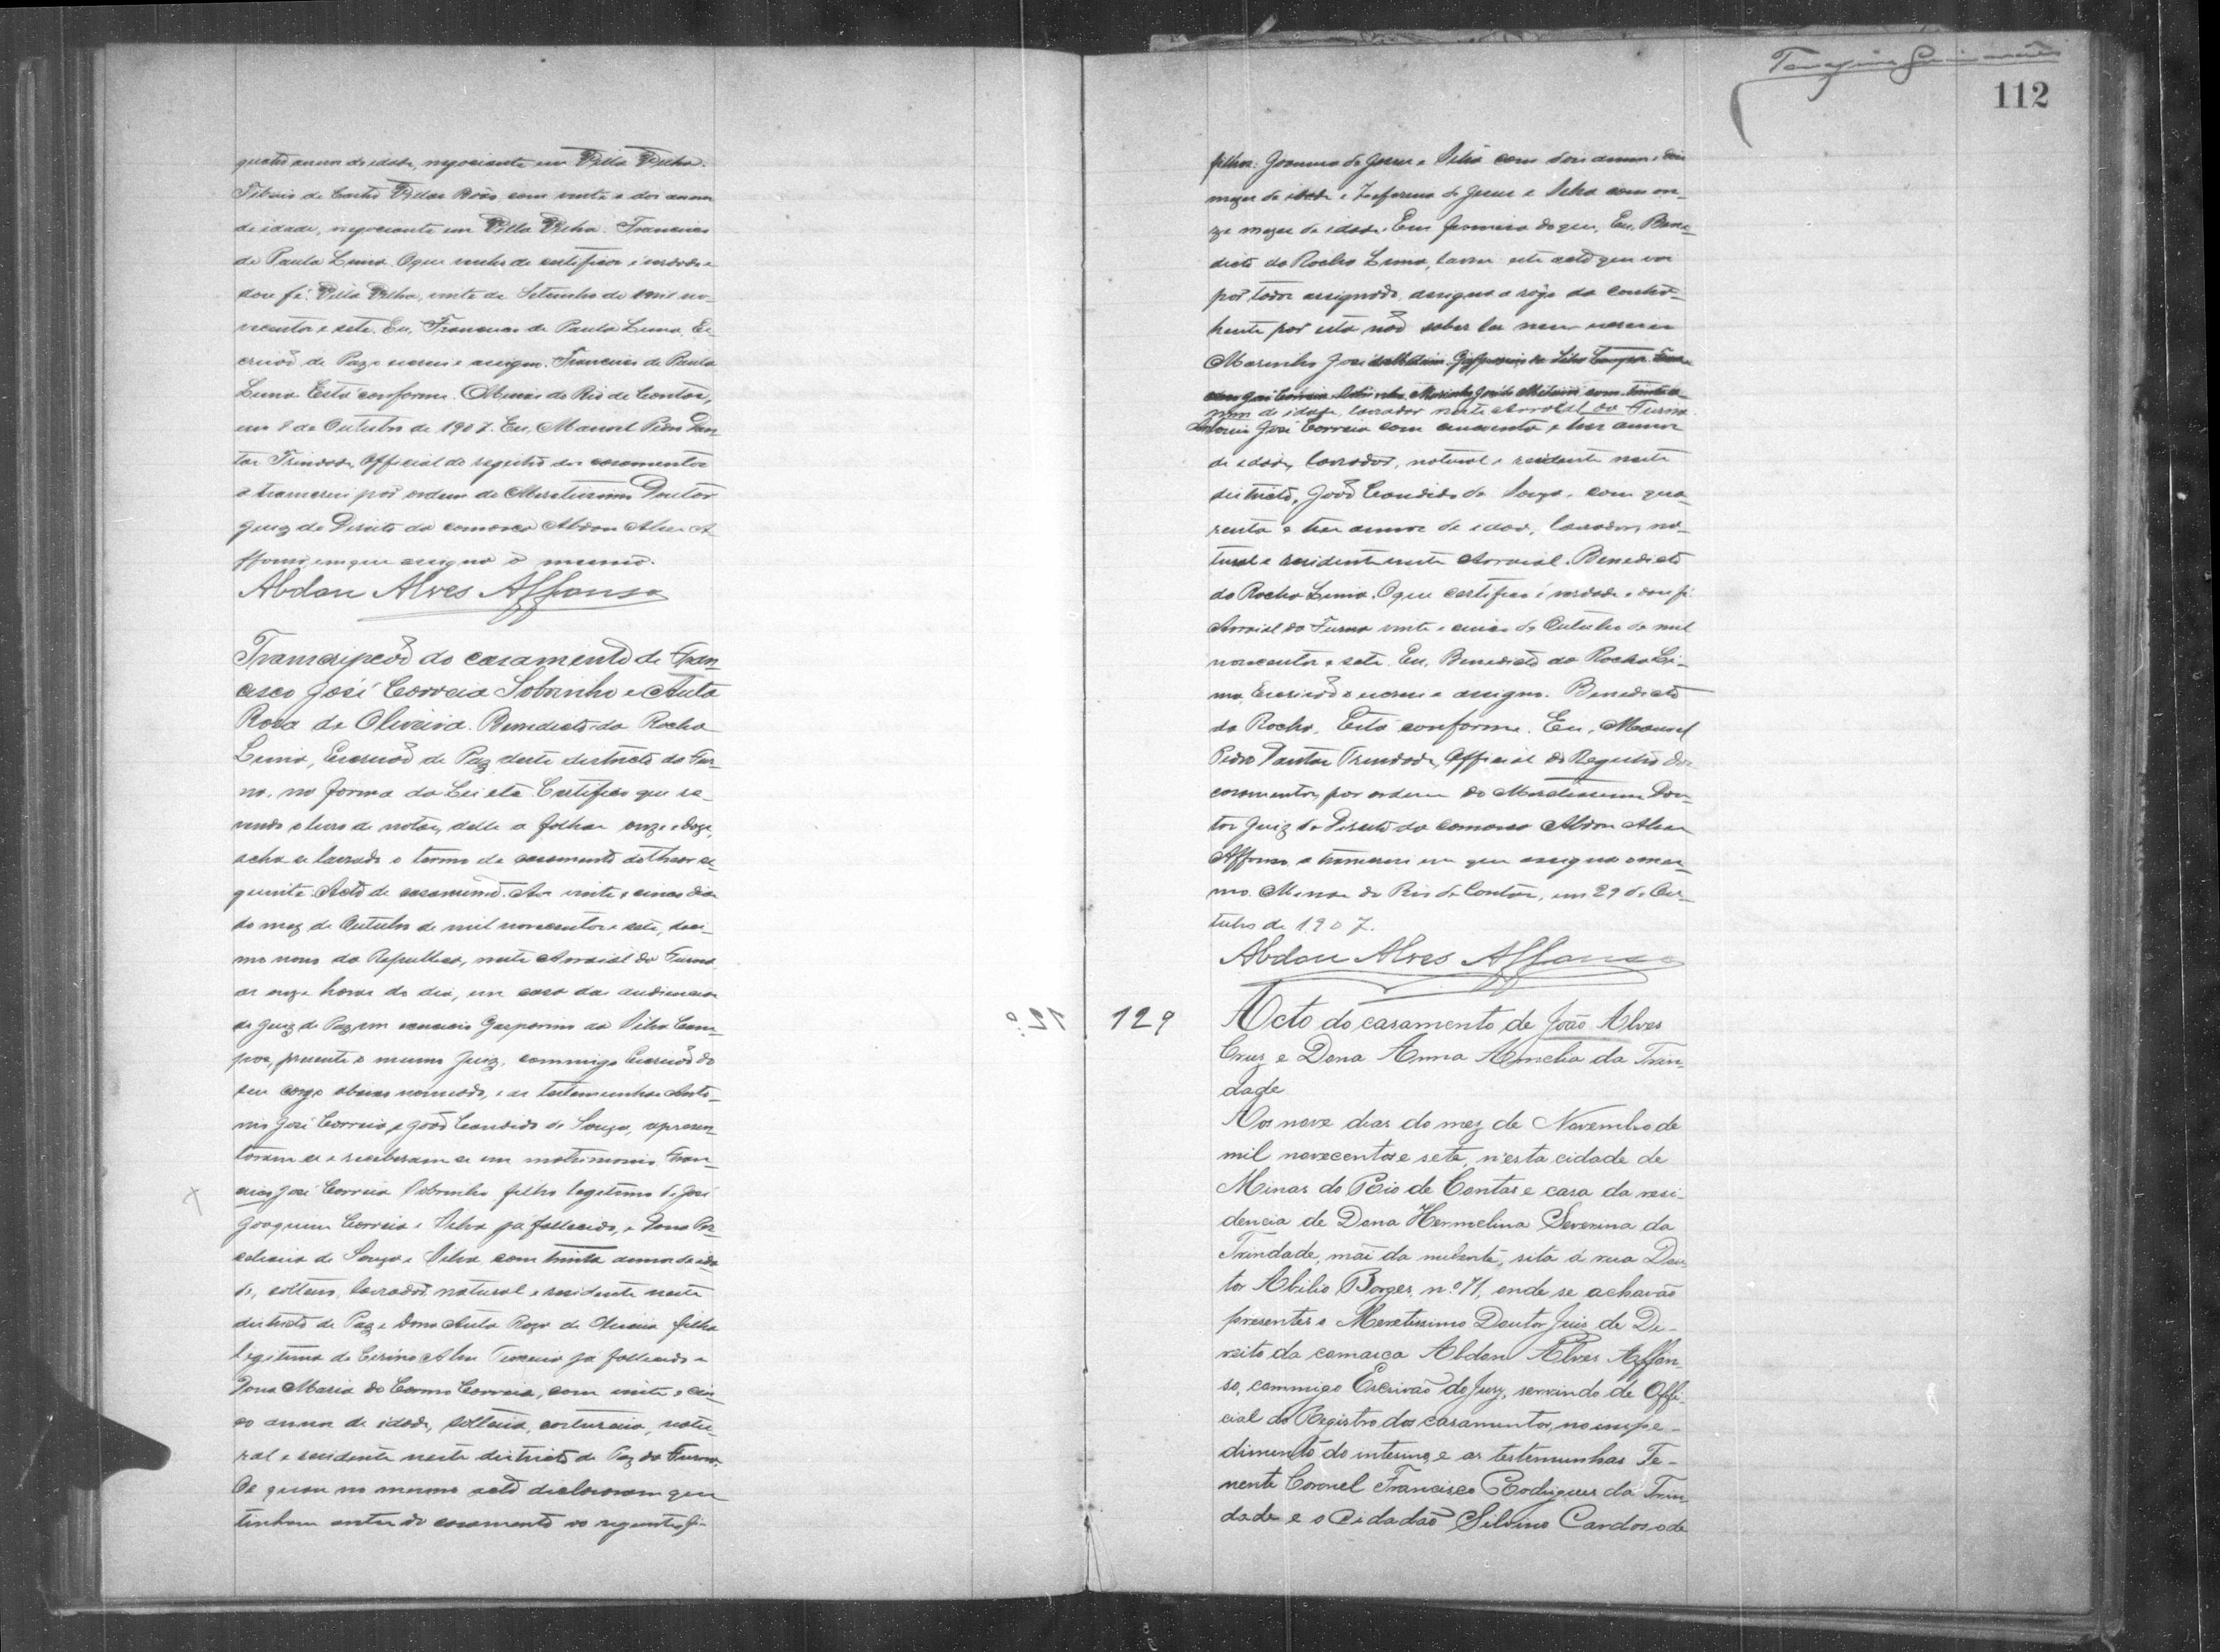 quatro annos de idade, negociante em Villa Velha.
de Castro Villas Bôas com vinte e dois annos
de idade, negociante em Villa Velha. Francisco
de Paula Lima. O que venho de certificar é verdade e
dou fé. Villa Velha, vinte de Setembro de mil no-
vecentos e sete. Eu, Francisco de Paula Lima, Es-
crivão de Paz o escrevi e assigno. Francisco de Paula
Lima. Está conforme. Minas do Rio de Contas,
em 8 de Outubro de 1907. Eu, Manoel Pedro Dan-
tas Trindade, Official do registro dos casamentos
o transcrevi por ordem do Meretissimo Doutor
Juiz de Direito da comarca Abdon Alves A-
ffonso em que assigna o mesmo.
Abdon Alves Affonso
Transcripção do casamento de Fran-
cisco José Correia Sobrinho e Auta
Rosa de Oliveira. Benedicto da Rocha
Lima, Escrivão de Paz deste districto do Fur-
na, na forma da Lei etc. Certifico que re-
vendo o livro de notas, delle a folhas onze e doze,
acha-se lavrado o termo de casamento do theor se-
guinte: Acto de casamento. Aos vinte e cinco dias
do mez de Outubro de mil novecentos e sete, deci-
mo nono da Republica, neste Arraial do Furna,
as onze horas do dia, em casa das audiencias
do Juiz de Paz em exercicio Gasparino da Silva Cam-
pos, presente o mesmo Juiz, commigo Escrivão do
seu cargo abaixo nomeado, e as testemunhas Anto-
nio José Correia e João Candido de Souza, apresen-
taram-se e receberam-se em matrimonio Fran-
cisco José Correia Sobrinho filho legitimo de José
Joaquim Correia e Silva já fallecido, e Dona Por-
de Souza e Silva com trinta annos de ida-
de, solteiro, lavrador, natural e residente neste
districto de Paz e Dona Auta Rosa de Oliveira filha
legitima de Cirino Alves já fallecido e
Dona Maria do Carmo Correia, com vinte e cin-
co annos de idade, solteira, costureira, natu-
ral e residente neste districto de Paz do Furna.
Os quaes no mesmo acto declararam que
tinham antes do casamento os seguintes fi-
Guimarães
112
filhos: de Jesus e Silva com dois annos e dois
mezes de idade e de Jesus e Silva com on-
ze mezes de idade. Em firmeza do que, Eu, Bene-
dicto da Rocha Lima, lavrei este acto que vai
por todos assignado, assigna a rogo da contra-
hente por esta não saber ler nem escrever
Marinho José
nnos de idade, lavrador neste Arraial do Furna.
Antonio José Correia com cincoenta e tres annos
de idade, lavrador, natural e residente neste
districto, João Candido de Souza, com qua-
renta e tres annos de idade, lavrador, na-
tural e residente neste Arraial. Benedicto
da Rocha Lima. O que certifico é verdade e dou fé.
Arraial do Furna vinte e cinco de Outubro de mil
novecentos e sete. Eu, Benedicto da Rocha Li-
ma, Escrivão o escrevi e assigno. Benedicto
da Rocha. Está conforme. Eu, Manoel
Pedro Dantas Trindade, Official do Registro dos
casamentos, por ordem do Meretissimo Dou-
tor Juiz de Direito da comarca Abdon Alves
Affonso o transcrevi em que assigna o mes-
mo. Minas do Rio de Contas, em 29 de Ou-
tubro de 1907.
Abdon Alves Affonso
129
Acto do casamento de João Alves
Cruz e Dona Anna Amelia da Trin-
dade
Aos nove dias do mez de Novembro de
mil novecentos e sete, n'esta cidade de
Minas do Rio de Contas e casa da resi-
dencia de Dona Hermelina Severina da
Trindade, mãi da nubente, sita á rua Dou-
tor Abilio Borges, nº 71, onde se achavão
presentes o Meretissimo Doutor Juis de Di-
reito da comarca Abdon Alves Affon-
so, commigo Escrivão do Jury, servindo de Offi-
cial do Registro dos casamentos, no impe-
dimento do interino, e as testemunhas Te-
nente Coronel Francisco Rodrigues da Trin-
dade e o Cidadão Silvino Cardoso de